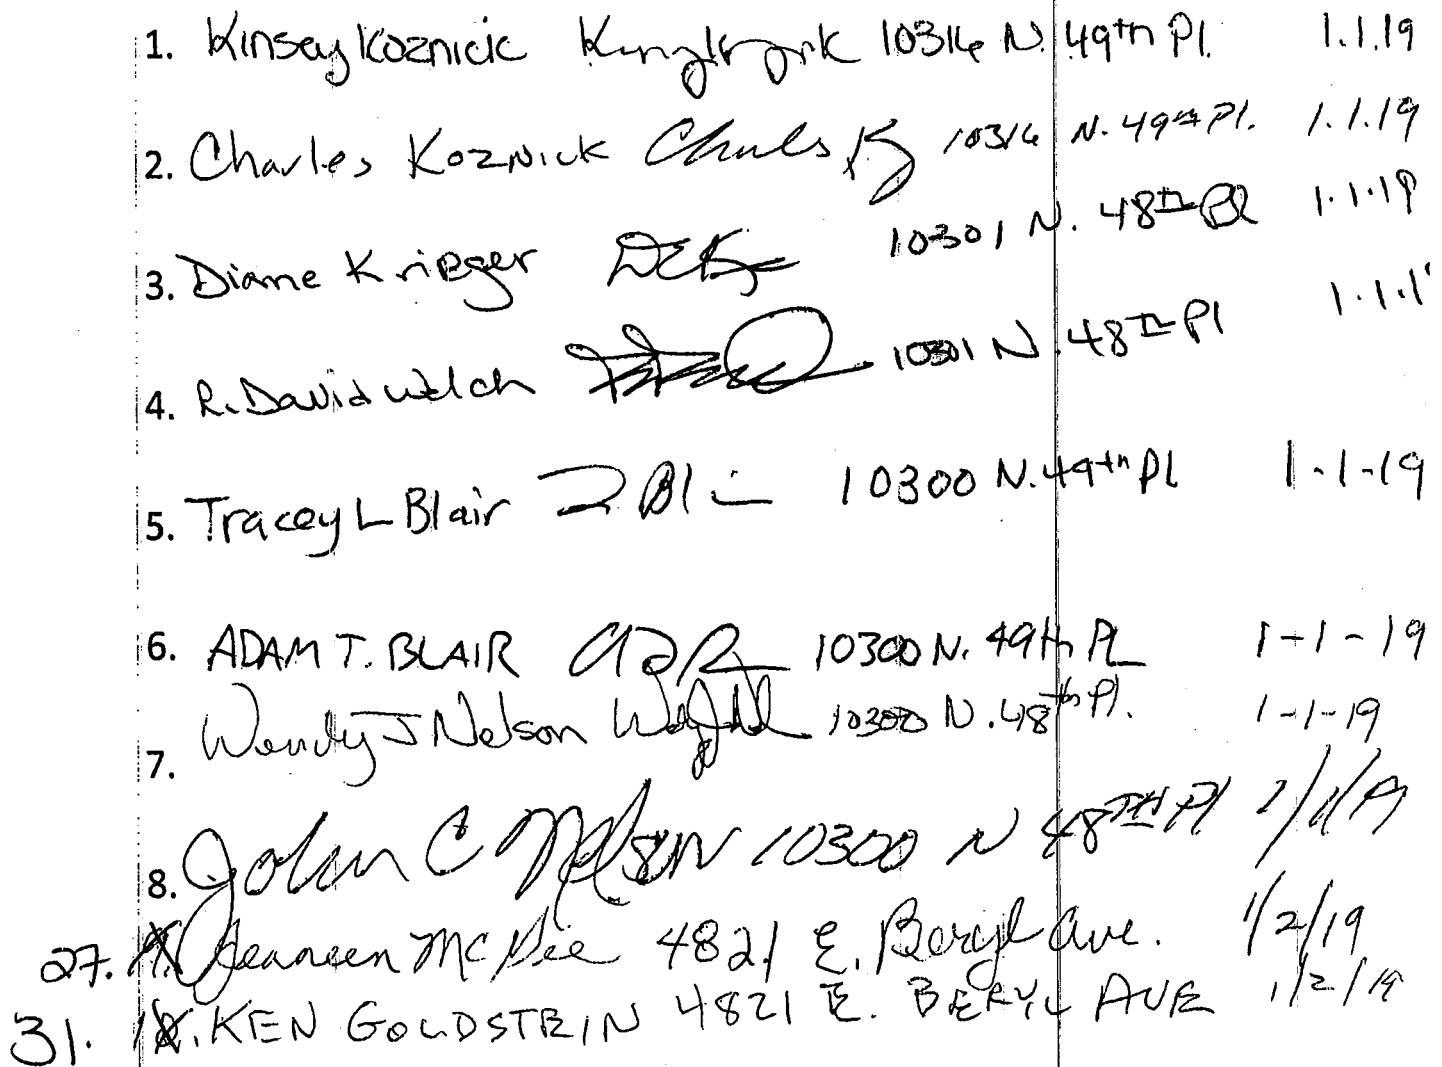 1. Kinsey Koznick 10316 N. 49th Pl. 1.1.19
2. Charles Koznick Charles K 10316 N. 49th Pl. 1.1.19
3. Diane Krieger 10301 N. 48th Pl 1.1.19
4. R. David Welch 10301 N. 48th Pl 1.1.1
5. Tracey L Blair 10300 N. 49th Pl 1-1-19
6. ADAM T. BLAIR 10300 N. 49th PL 1-1-19
7. Wendy J Nelson 10300 N. 48th Pl. 1-1-19
8. John C Nelson 10300 N 48TH Pl 1/1/19
27. Jeaneen McGie 4821 E. Beryl Ave. 1/2/19
31. 10. KEN GOLDSTEIN 4821 E. BERYL AVE 1/2/19